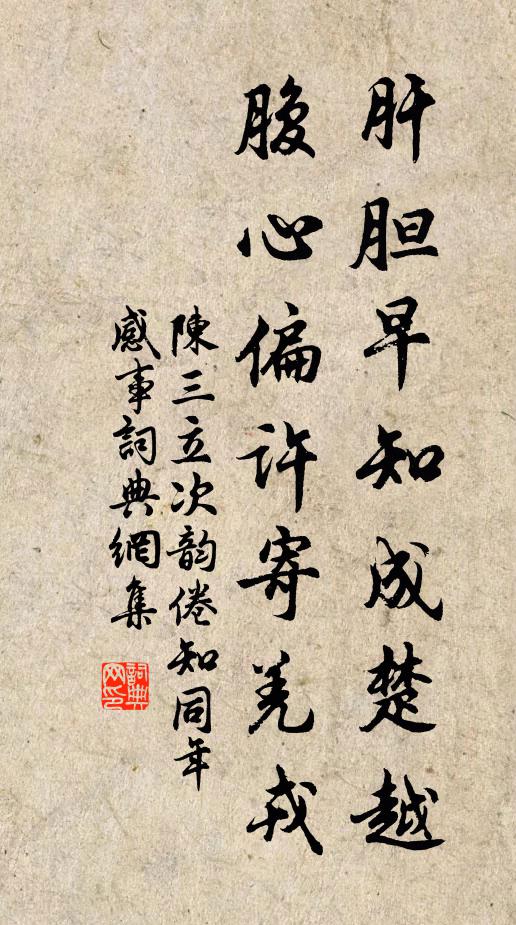 肝胆早知成楚越
腹心偏许寄羌戎
陳三立次韵倦知同年
感事詞典網集
詞典網印